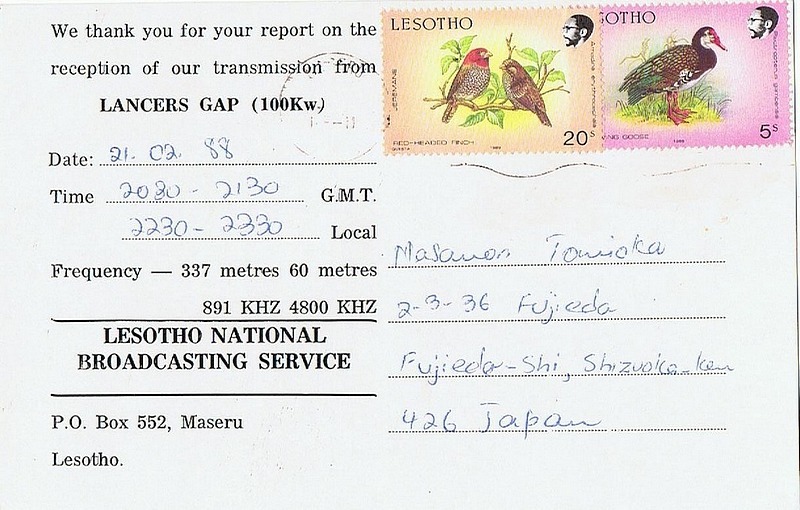 We thank you for your report on the
reception of our transmission from
LANCERS GAP (100Kw)
Date: 21. 02. 88
Time 2030 - 2130 G.M.T.
2230 - 2330 Local
Frequency — 337 metres 60 metres
891 KHZ 4800 KHZ
LESOTHO NATIONAL
BROADCASTING SERVICE
P.O. Box 552, Maseru
Lesotho.
LESOTHO
RED-HEADED FINCH
20s
SOTHO
GOOSE
1988
5s
Masanori Tomioka
2-3-36 Fujieda
Fujieda-Shi, Shizuoka-ken
426 Japan